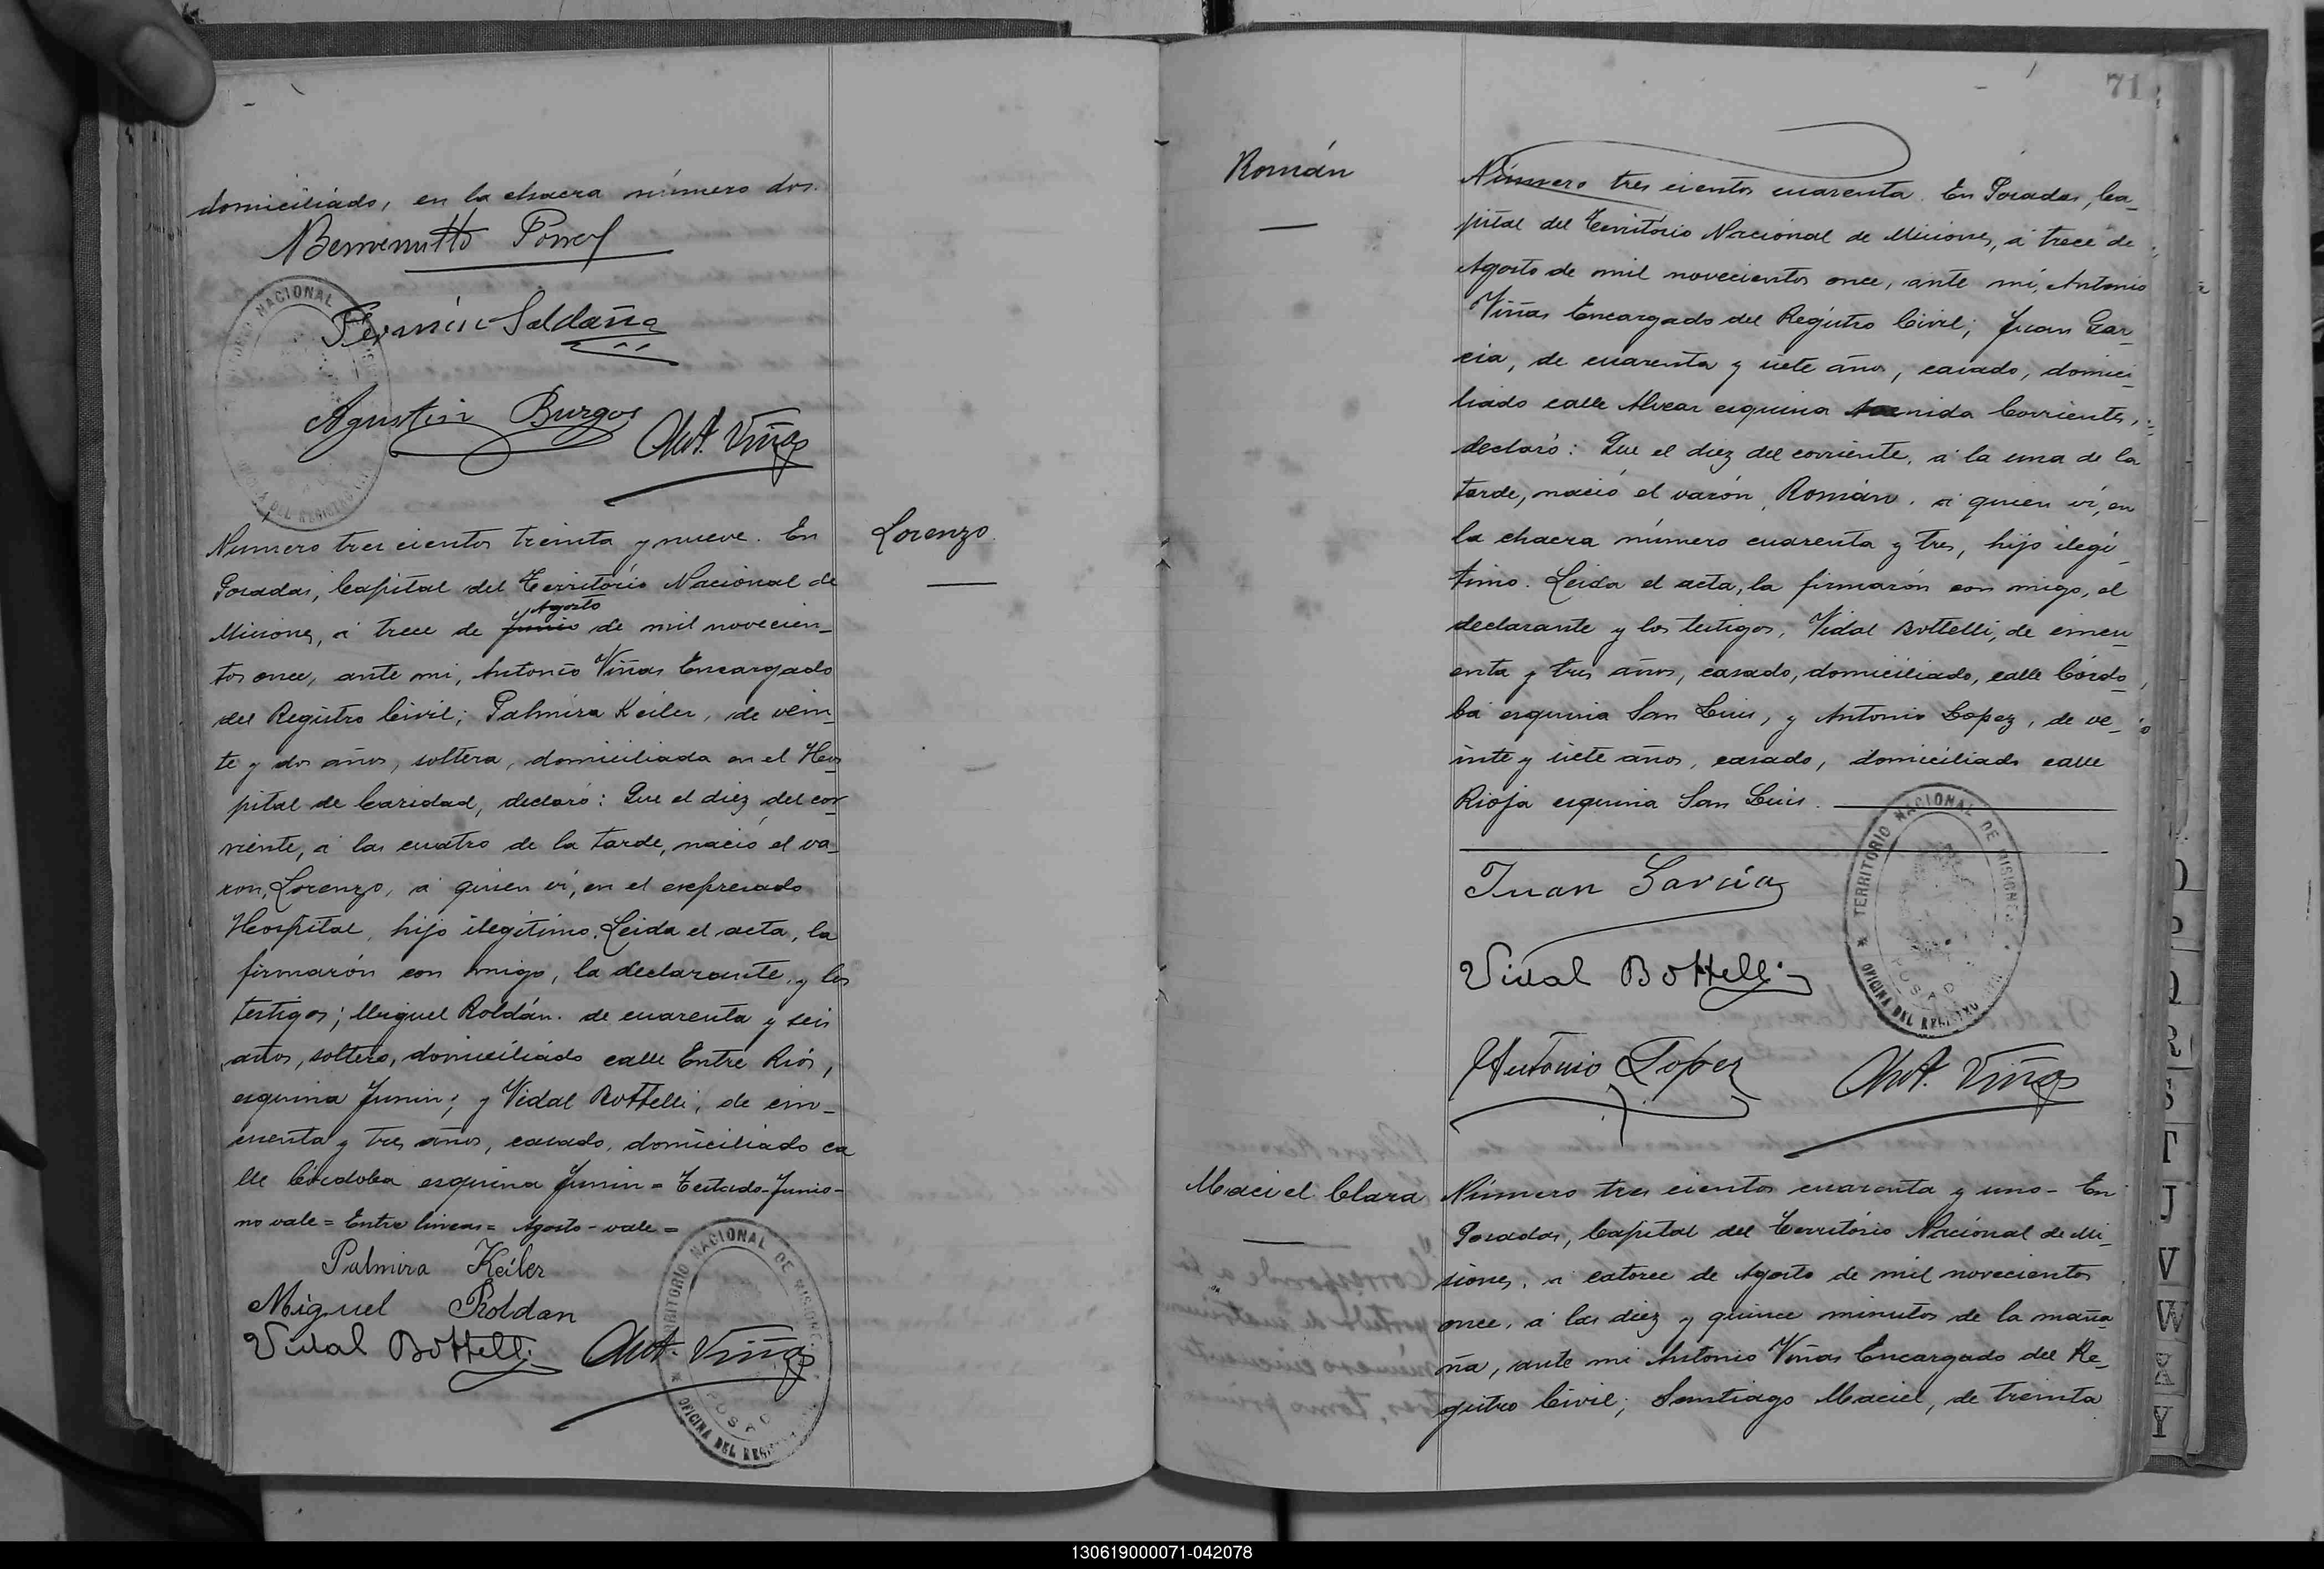 domiciliado, en la chacra número dos.
Benvenutto
Fermín Saldaña
Agustin Burgos Ant. Viñas
Número tres cientos treinta y nueve. En
Lorenzo
Posadas, Capital del Territorio Nacional de
Agosto
Misiones, á trece de Junio de mil novecien_
tos once, ante mi, Antonio Viñas Encargado
del Registro Civil; Palmira Keiler, de vein_
te y dos años, soltera, domiciliada en el Hos_
pital de Caridad, declaró: Que el diez del cor_
riente, á las cuatro de la tarde, nació el va_
ron, Lorenzo, á quien ví, en el expresado
Hospital, hijo ilegítimo. Leida el acta, la
firmarón con migo, la declarante, y los
testigos; Miguel Roldán. de cuarenta y seis
años, soltero, domiciliado calle Entre Rios,
esquina Junin; y Vidal Bottelli, de cin_
cuenta y tres años, casado, domiciliado ca
lle Córdoba esquina Junin = Testado-Junio-
no vale = Entre lineas = Agosto - vale =
Palmira Keiler
Miguel Roldan
Vidal Bottelli Ant. Viñas
TERRITORIO NACIONAL DE MISIONES
POSADAS
OFICINA DEL REGISTRO
71
Román
Número tres cientos cuarenta. En Posadas, Ca_
pital del Territorio Nacional de Misiones, á trece de
Agosto de mil novecientos once, ante mí, Antonio
Viñas Encargado del Registro Civil; Juan Gar_
cia, de cuarenta y siete años, casado, domici_
liado calle Alvear esquina Avenida Corrientes,
declaró: Que el diez del corriente, á la una de la
tarde, nació el varón, Román, á quien ví, en
la chacra número cuarenta y tres, hijo ilegí_
timo. Leida el acta, la firmarón con migo, el
declarante y los testigos, Vidal Bottelli, de cincu
enta y tres años, casado, domiciliado, calle Córdo_
ba esquina San Luis, y Antonio Lopez, de ve_
inte y siete años, casado, domiciliado calle
Rioja esquina San Luis.
Juan García
Vidal Bottelli
Antonio Lopez Ant. Viñas
TERRITORIO NACIONAL DE MISIONES
POSADAS
OFICINA DEL REGISTRO
Maciel Clara
Número tres cientos cuarenta y uno - En
Posadas, Capital del Territorio Nacional de Mi_
siones, á catorce de Agosto de mil novecientos
once, á las diez y quince minutos de la maña
ña, ante mi Antonio Viñas Encargado del Re_
gistro Civil; Santiago Maciel, de treinta
Q
R
S
T
J
V
W
X
Y
130619000071-042078